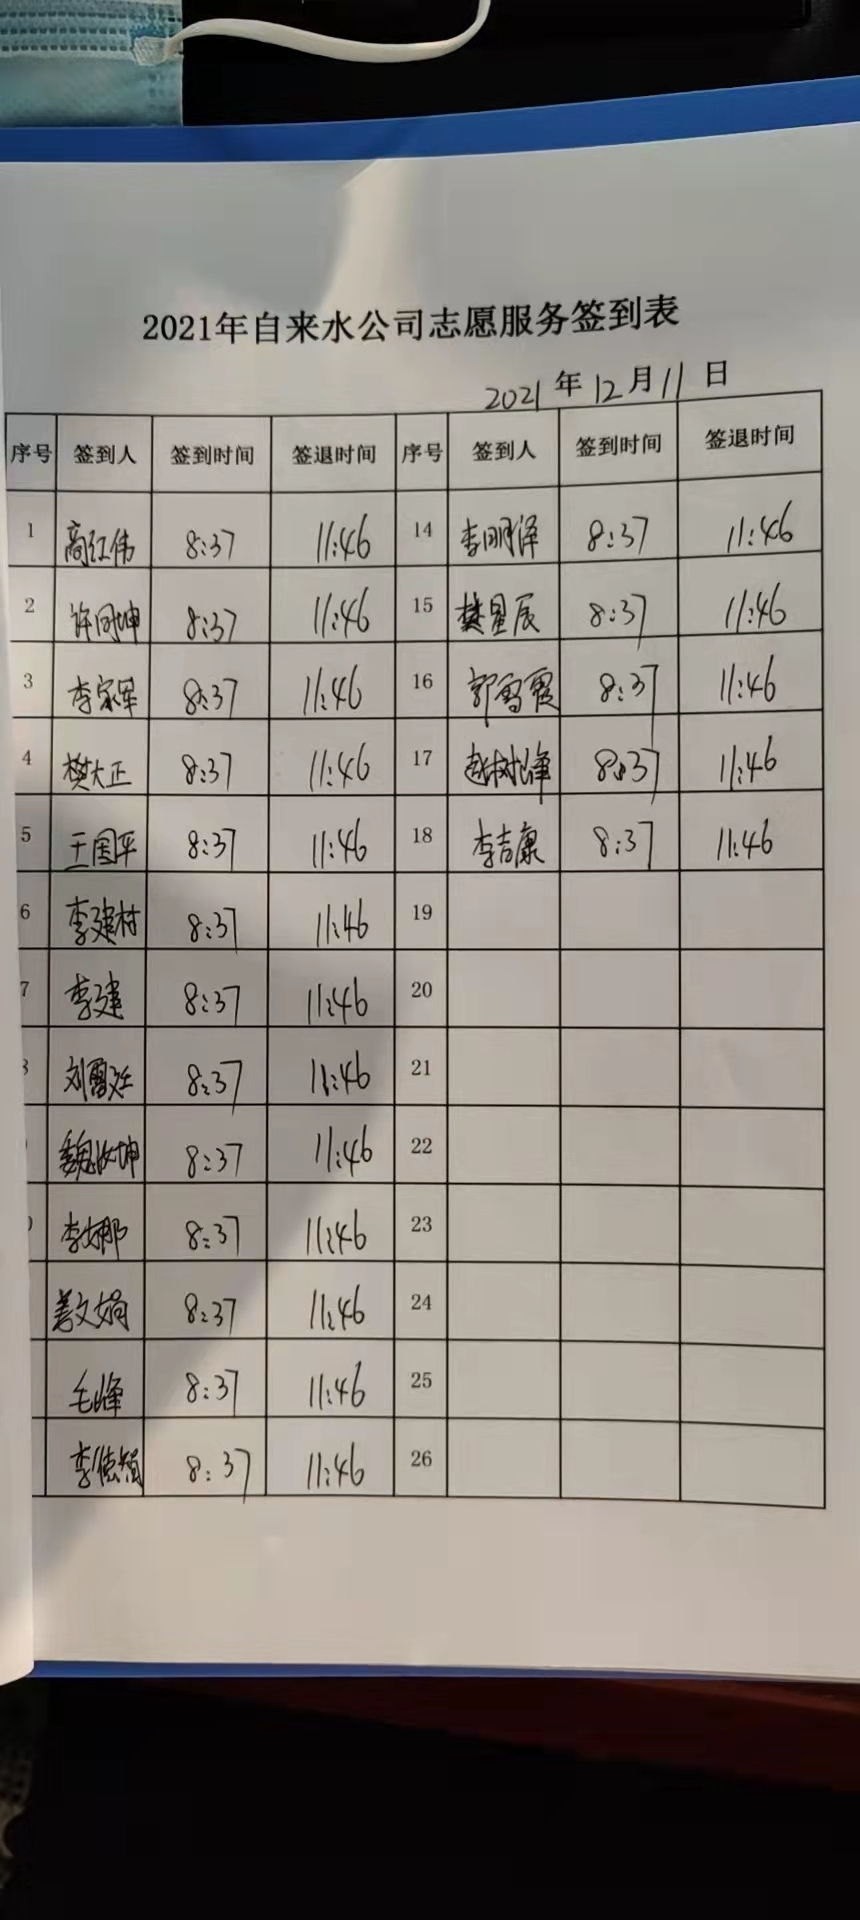 2021年自来水公司志愿服务签到表
2021年12月11日
序号 签到人 签到时间 签退时间 序号 签到人 签到时间 签退时间
1 高红伟 8:37 11:46 14 李明泽 8:37 11:46
2 许同坤 8:37 11:46 15 樊星辰 8:37 11:46
3 李家军 8:37 11:46 16 郭雪霞 8:37 11:46
4 樊大正 8:37 11:46 17 赵树峰 8:37 11:46
5 王国平 8:37 11:46 18 李吉康 8:37 11:46
6 李建村 8:37 11:46 19
7 李建 8:37 11:46 20
刘 8:37 11:46 21
魏 坤 8:37 11:46 22
李娜 8:37 11:46 23
姜文娟 8:37 11:46 24
毛峰 8:37 11:46 25
李德 8:37 11:46 26